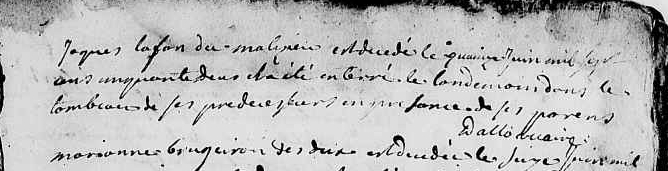 jaques lafon du malzieu est decedé le quinze juin mil sept
cens cinquante deux et a été enterré le landemain dans le
tombeau de ses predecesseurs en presance de ses parens
Dallo vicaire
marianne brugeiron des deux est decedée le juin mil